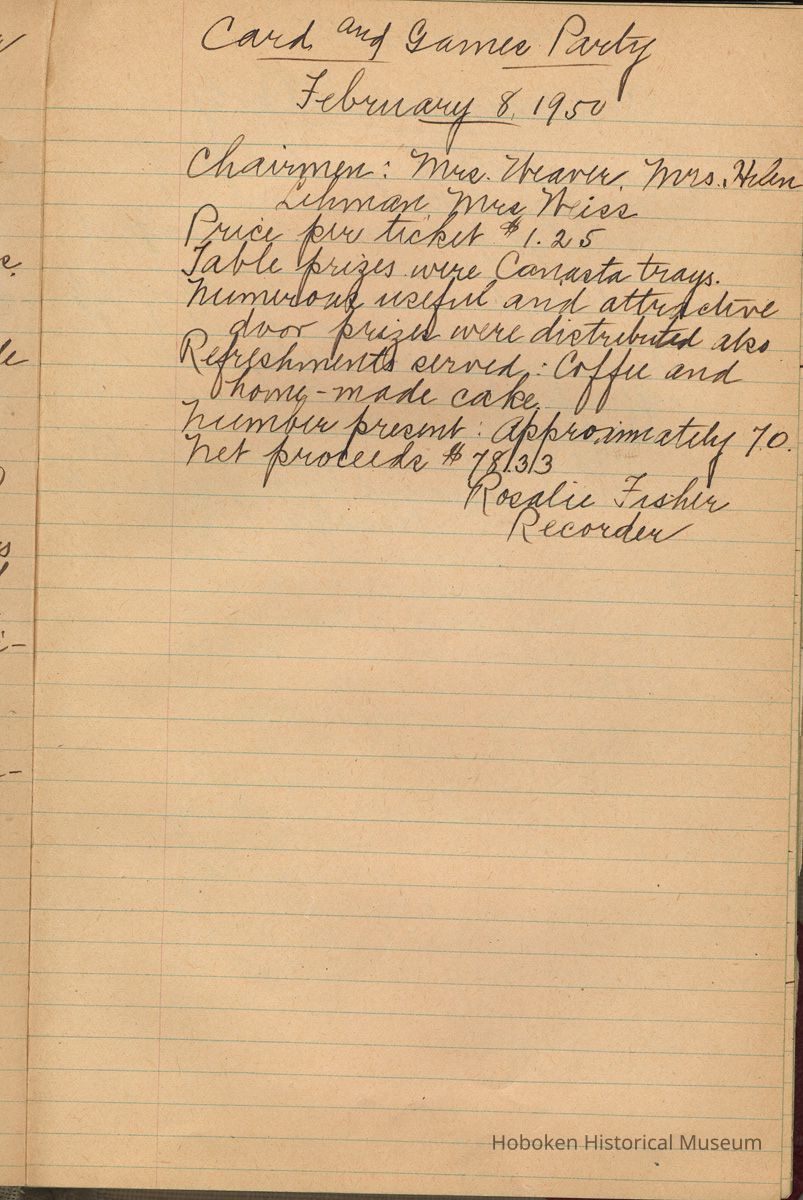 Card and Games Party
February 8, 1950
Chairmen: Mrs. Weaver, Mrs. Helen
Lehman, Mrs Weiss
Price per ticket $1.25
Table prizes were Canasta trays.
Numerous useful and attractive
door prizes were distributed also
Refreshments served: Coffee and
home-made cake.
Number present: Approximately 70.
Net proceeds $78.33
Rosalie Fisher
Recorder
Hoboken Historical Museum